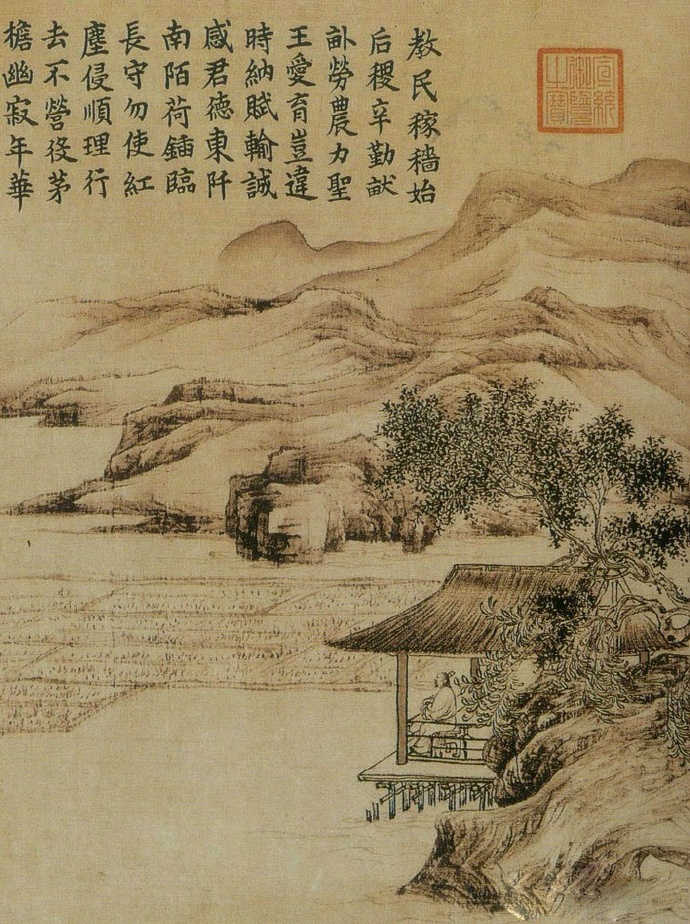 宣統
御覽
之寶
教民稼穡始
后稷辛勤
勞農力聖
王愛育豈違
時納賦輸誠
感君德東阡
南陌荷鍤臨
長守勿使紅
塵侵順理行
去不營役茅
檐幽寂年華